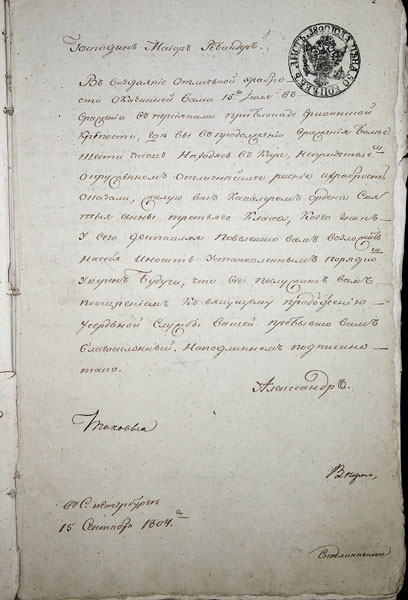 Господинъ Маіоръ
Въ воздаяніе отличной храбро
сти оказанной вами 15го Іюля въ
сраженіи съ персіянами при блокаде Эриванской
крѣпости, гдѣ вы въ продолженіи сраженія болѣе
шести часовъ находясь въ каре, непріятелемъ
окруженномъ отличнѣйшее рвеніе и храбрость
оказали, жалую васъ Кавалеромъ ордена Свя
тыя Анны третьяго Класса, коего знакъ
у сего доставляя повелеваю вамъ возложить
на себя и носить установленнымъ порядкомъ
уверенъ будучи, что сіе послужитъ вамъ
поощреніемъ ко вящщему продолженію
усердной службы вашей пребываю вамъ
благосклонный. На подлинномъ подписано
тако.
Александръ.
въ С: петербургѣ
15 Сентября 1804го
Сподлиннымъ